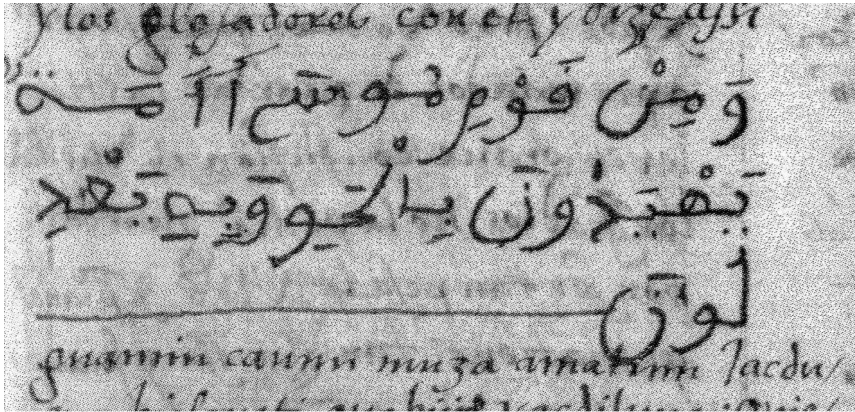 y los glosadores con el, y dize assi
وَمِنْ قَوْمِ مُوسَى أُمَّةٌ
يَهْدُونَ بِالْحَقِّ وَبِهِ يَعْدِ
لُونَ
guamin caumi muza amatun Jacdu/